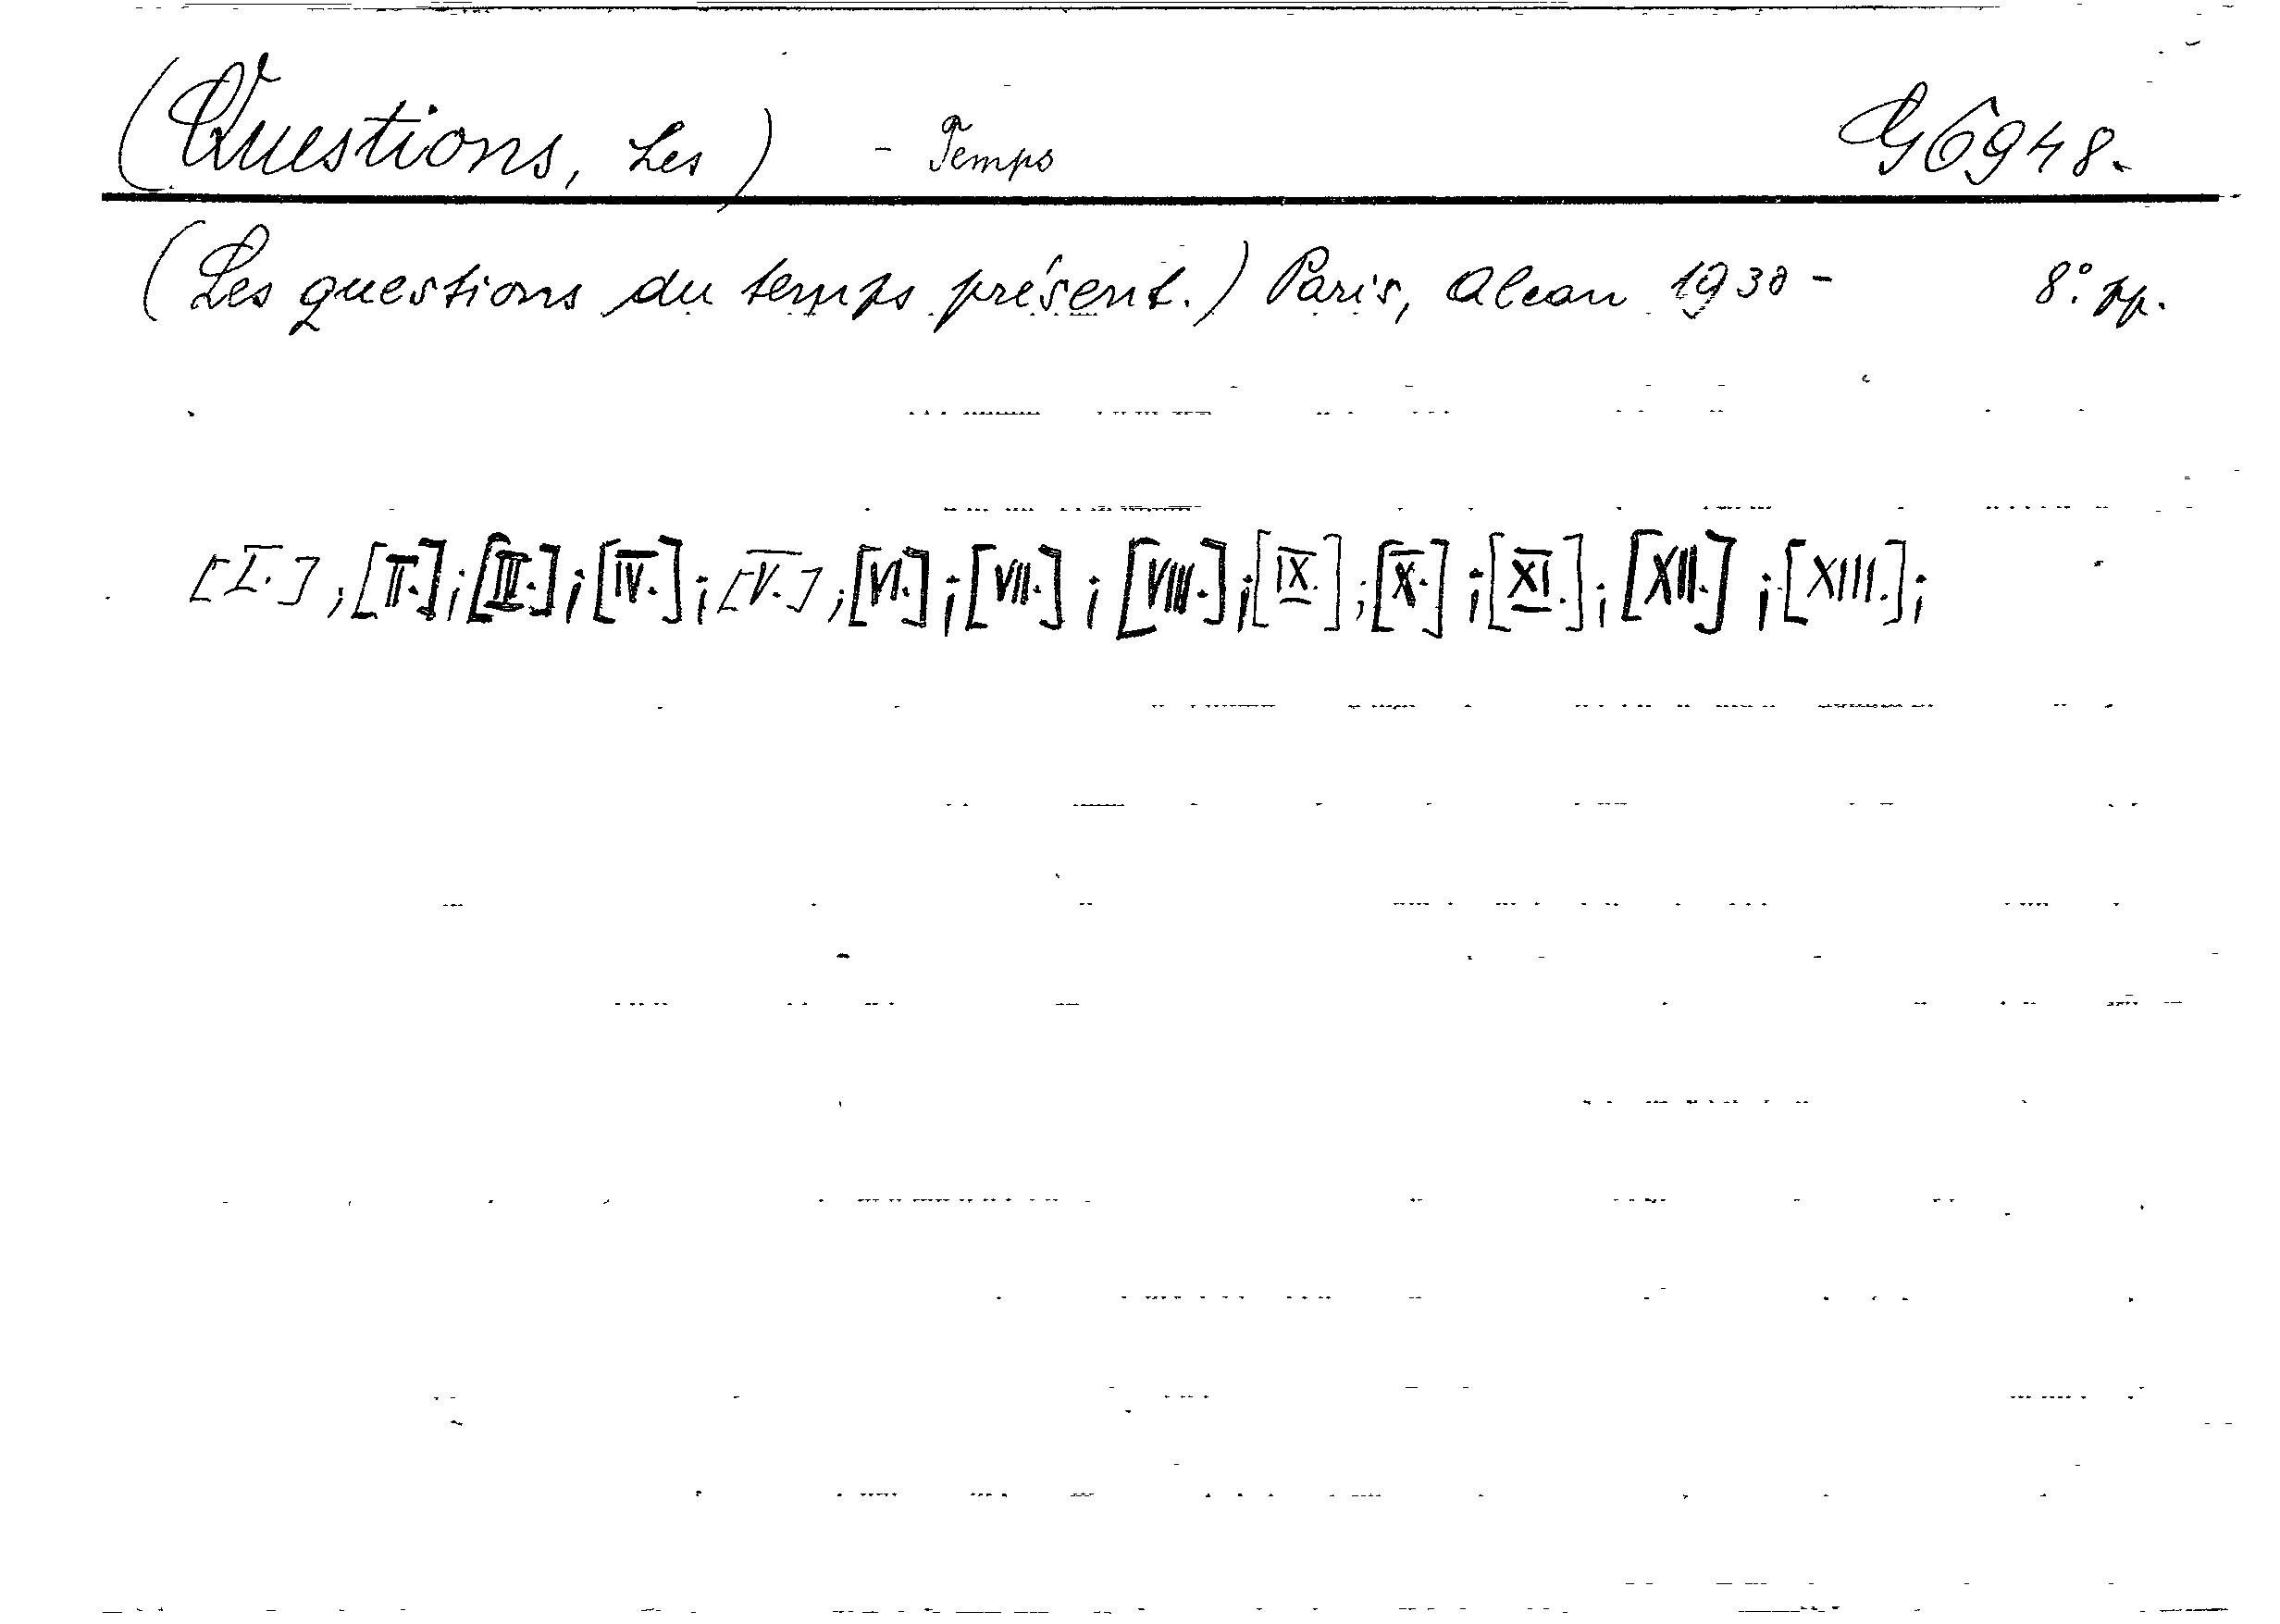 (Questions, Les) - Temps G 6948.
(Les questions du temps présent.) Paris, Alcan 1930 - 8º. pp.
[I.]; [II.]; [III.]; [IV.]; [V.]; [VI.]; [VII.]; [VIII.]; [IX.]; [X.]; [XI.]; [XII.]; [XIII.];